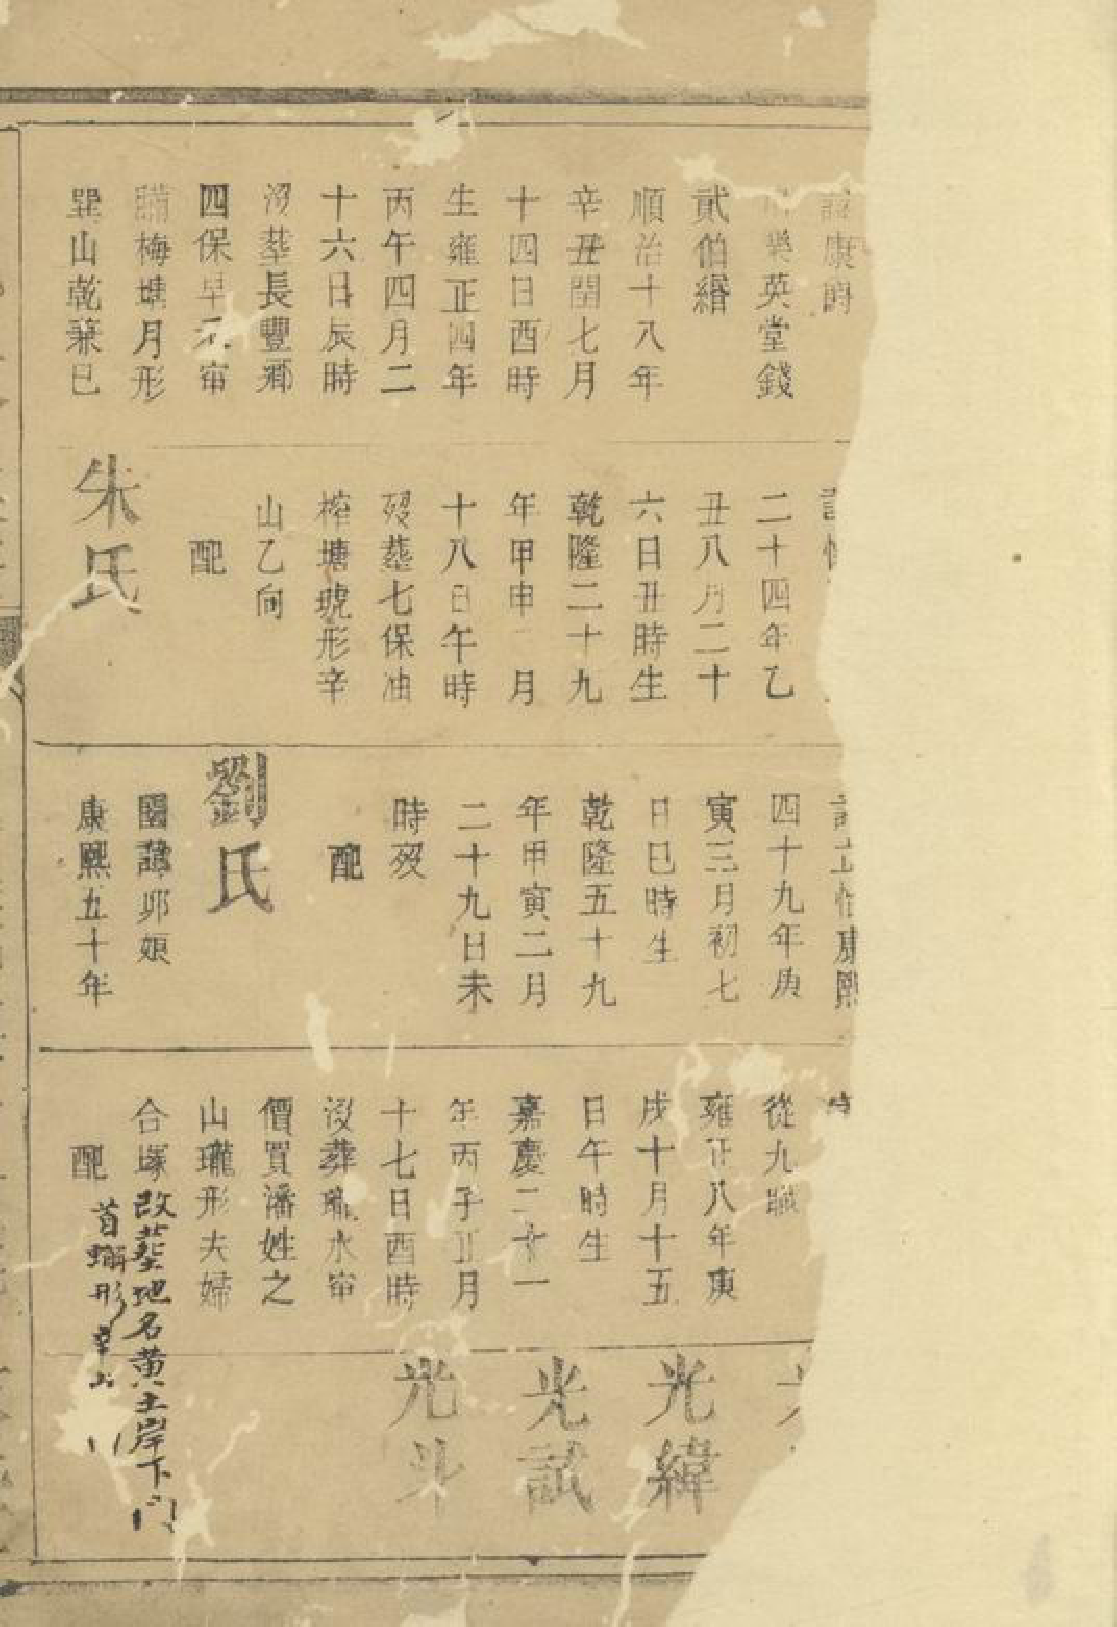 康爵
樂英堂錢
貳伯緡
順治十八年
辛丑閏七月
十四日酉時
生雍正四年
丙午四月二
十六日辰時
沒葬長豐鄉
四保早禾窜
梅塘月形
巽山乾兼巳
二十四年乙
丑八月二十
六日丑時生
乾隆二十九
年甲申月
十八日午時
歿葬七保油
榨塘琥形辛
山乙向
配
朱氏
康熙
四十九年庚
寅三月初七
日巳時生
乾隆五十九
年甲寅二月
二十九日未
時歿
配
劉氏
國諱卯娘
康熙五十年
從九職
雍正八年庚
戌十月十五
日午時生
嘉慶二十一
年丙子正月
十七日酉時
沒葬水窜
價買潘姓之
山瓏形夫婦
合塚改葬地名黃土岸下
配
形辛山
光緯
光試
光斗